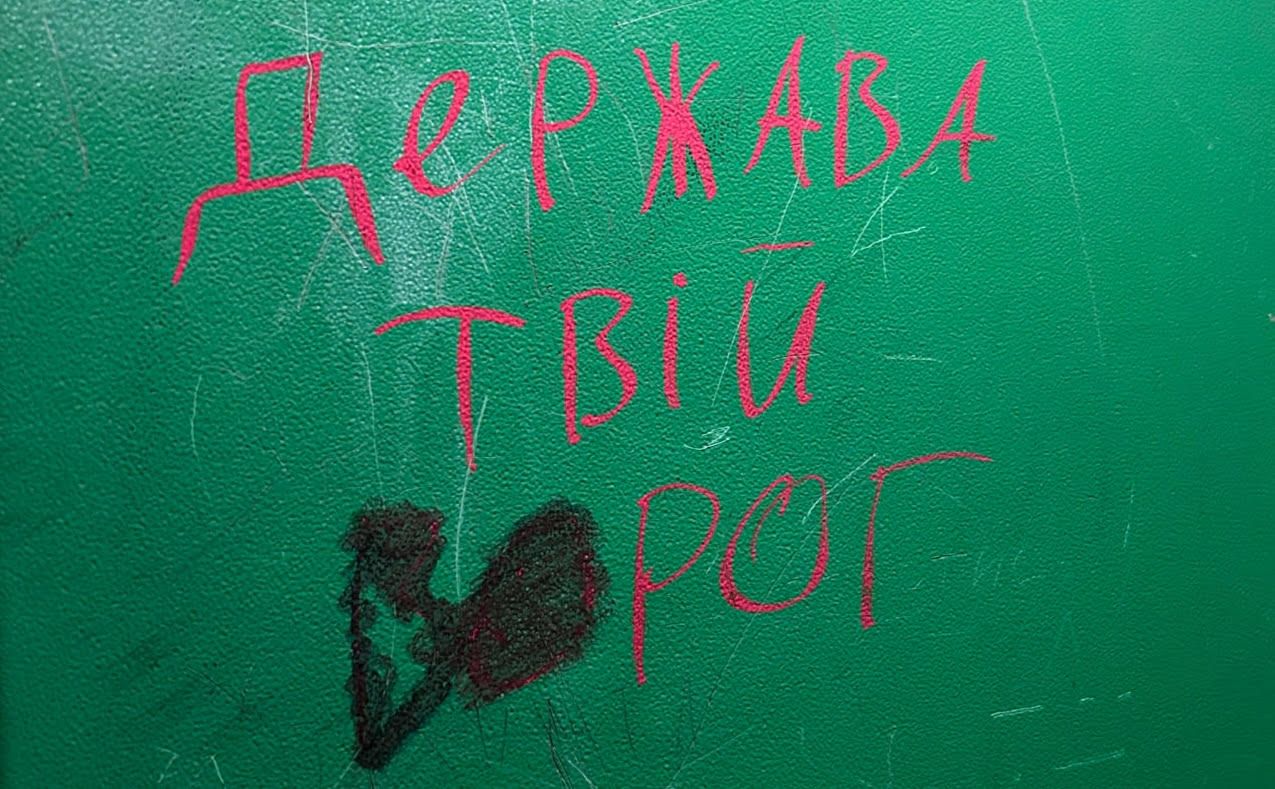 ДеРЖАВА
ТВіЙ
РОГ